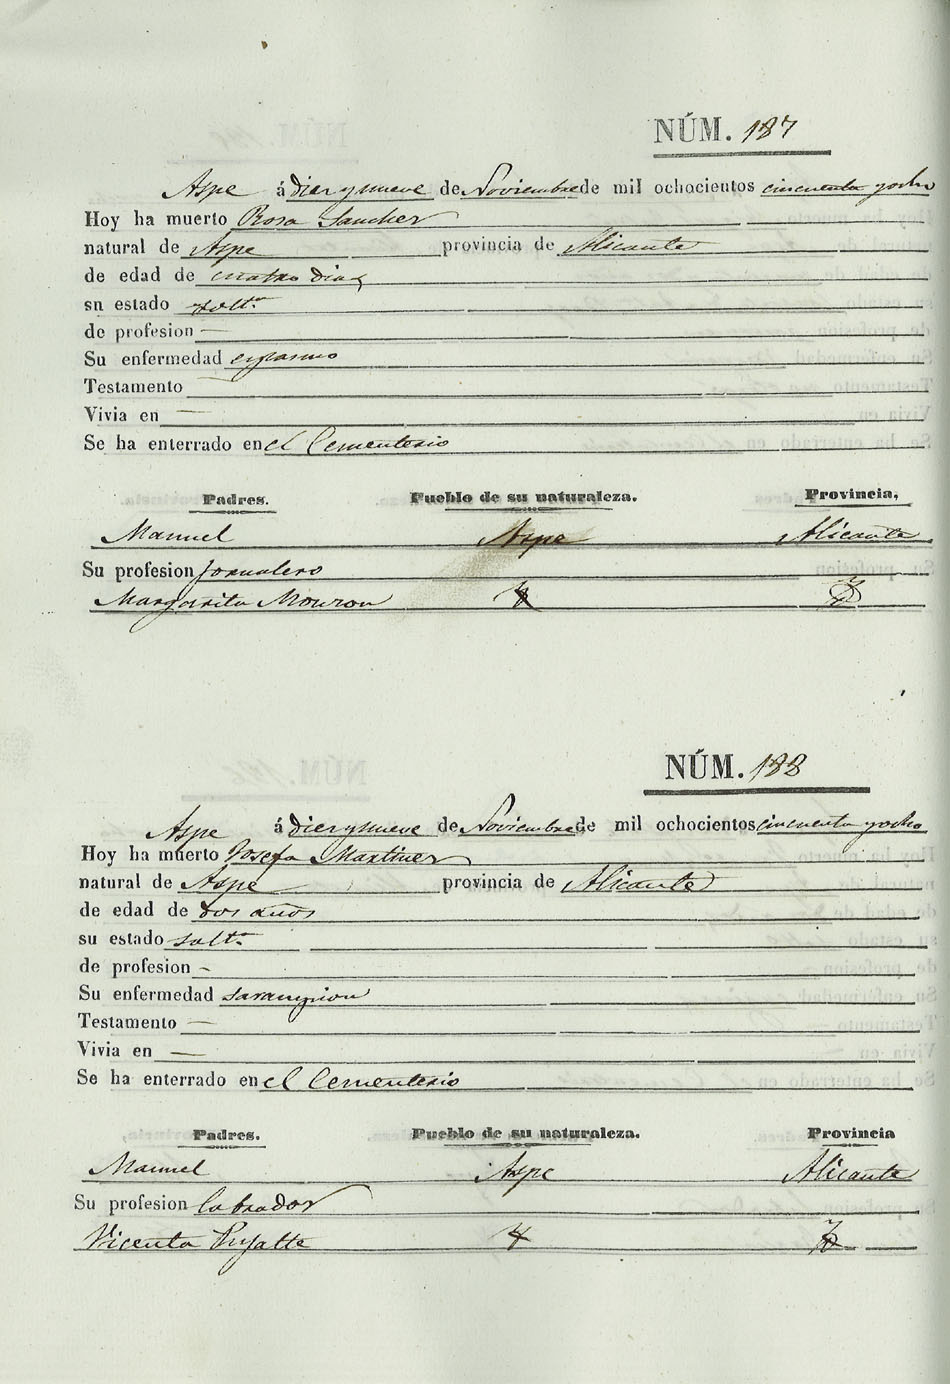 NÚM. 187
Aspe á diez y nueve de Noviembre de mil ochocientos cincuenta y ocho
Hoy ha muerto Rosa Sanchez
natural de Aspe provincia de Alicante
de edad de cuatro dias
su estado solt.ª
de profesion —
Su enfermedad espasmo
Testamento —
Vivia en —
Se ha enterrado en el Cementerio
Padres. Pueblo de su naturaleza. Provincia,
Manuel Aspe Alicante
Su profesion Jornalero
Margarita
NÚM. 188
Aspe á diez y nueve de Noviembre de mil ochocientos cincuenta y ocho
Hoy ha muerto Josefa Martinez
natural de Aspe provincia de Alicante
de edad de dos años
su estado solt.ª
de profesion -
Su enfermedad sarampion
Testamento —
Vivia en —
Se ha enterrado en el Cementerio
Padres. Pueblo de su naturaleza. Provincia
Manuel Aspe Alicante
Su profesion labrador
Vicenta